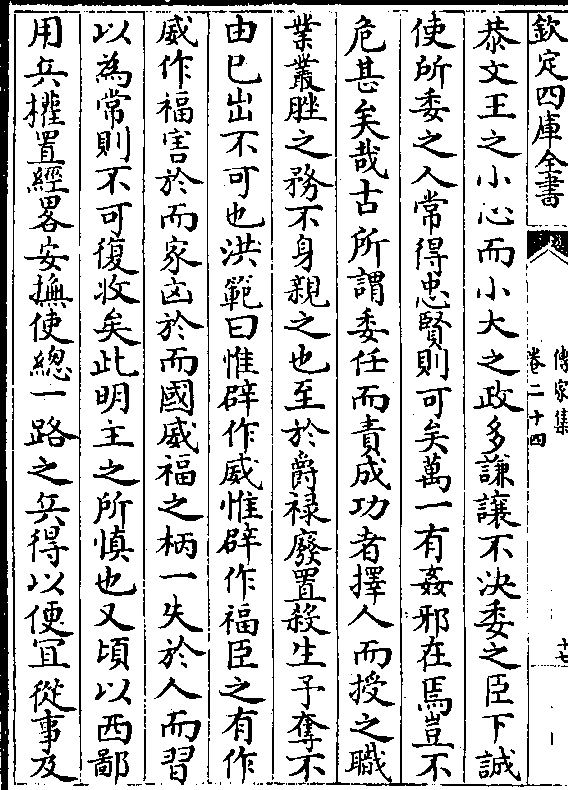 欽定四庫全書
傳家集
卷二十四
十七
恭文王之小心而小大之政多謙讓不决委之臣下誠
使所委之人常得忠賢則可矣萬一有姦邪在焉豈不
危甚矣哉古所謂委任而責成功者擇人而授之職
業叢脞之務不身親之也至於爵祿廢置殺生予奪不
由已出不可也洪範曰惟辟作威惟辟作福臣之有作
威作福害於而家凶於而國威福之柄一失於人而習
以為常則不可復收矣此明主之所慎也又頃以西鄙
用兵權置經畧安撫使總一路之兵得以便冝從事及